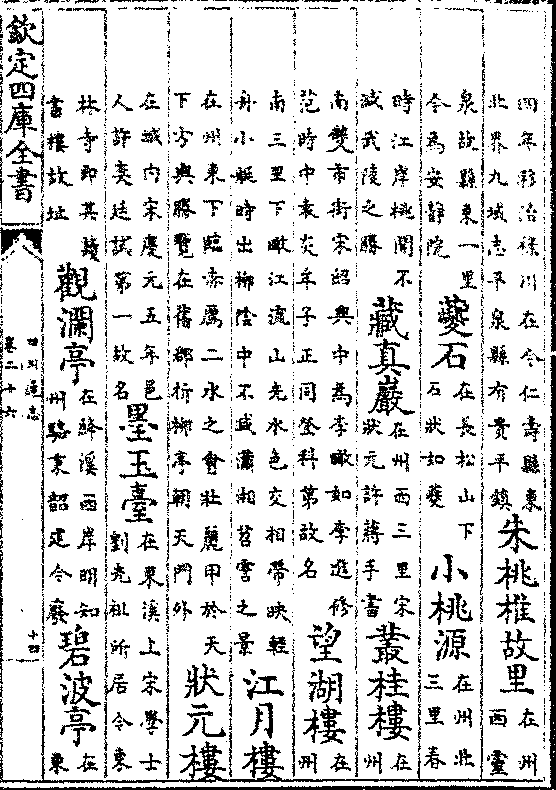 四年移治祿川在今仁壽縣東
北界九域志平泉縣有貴平鎮
朱桃椎故里
在州
西靈
泉故縣東一里
今為安靜院
夔石
在長松山下
石狀如夔
小桃源
在州北
三里春
時江岸桃開不
減武陵之勝
藏真巖
在州西三里宋
狀元許蔣手書
叢桂樓
在
州
南雙市街宋紹興中為李瞰如李進修
范時中袁炎年子正同登科第故名
望湖樓
在
州
南三里下瞰江流山光水色交相帶映輕
舟小艇時出柳陰中不減瀟湘苕霅之景
江月樓
在州東下臨赤厲二水之會壯麗甲於天
下方輿勝覽在舊郡行柳亭朝天門外
狀元樓
在城內宋慶元五年邑
人許奕廷試第一故名
墨玉臺
在東溪上宋學士
劉光祖所居今東
林寺即其讀
書樓故址
觀瀾亭
在絳溪西岸明知
州駱東韶建今廢
碧波亭
在
東
欽定四庫全書
四川通志
卷二十六
十四